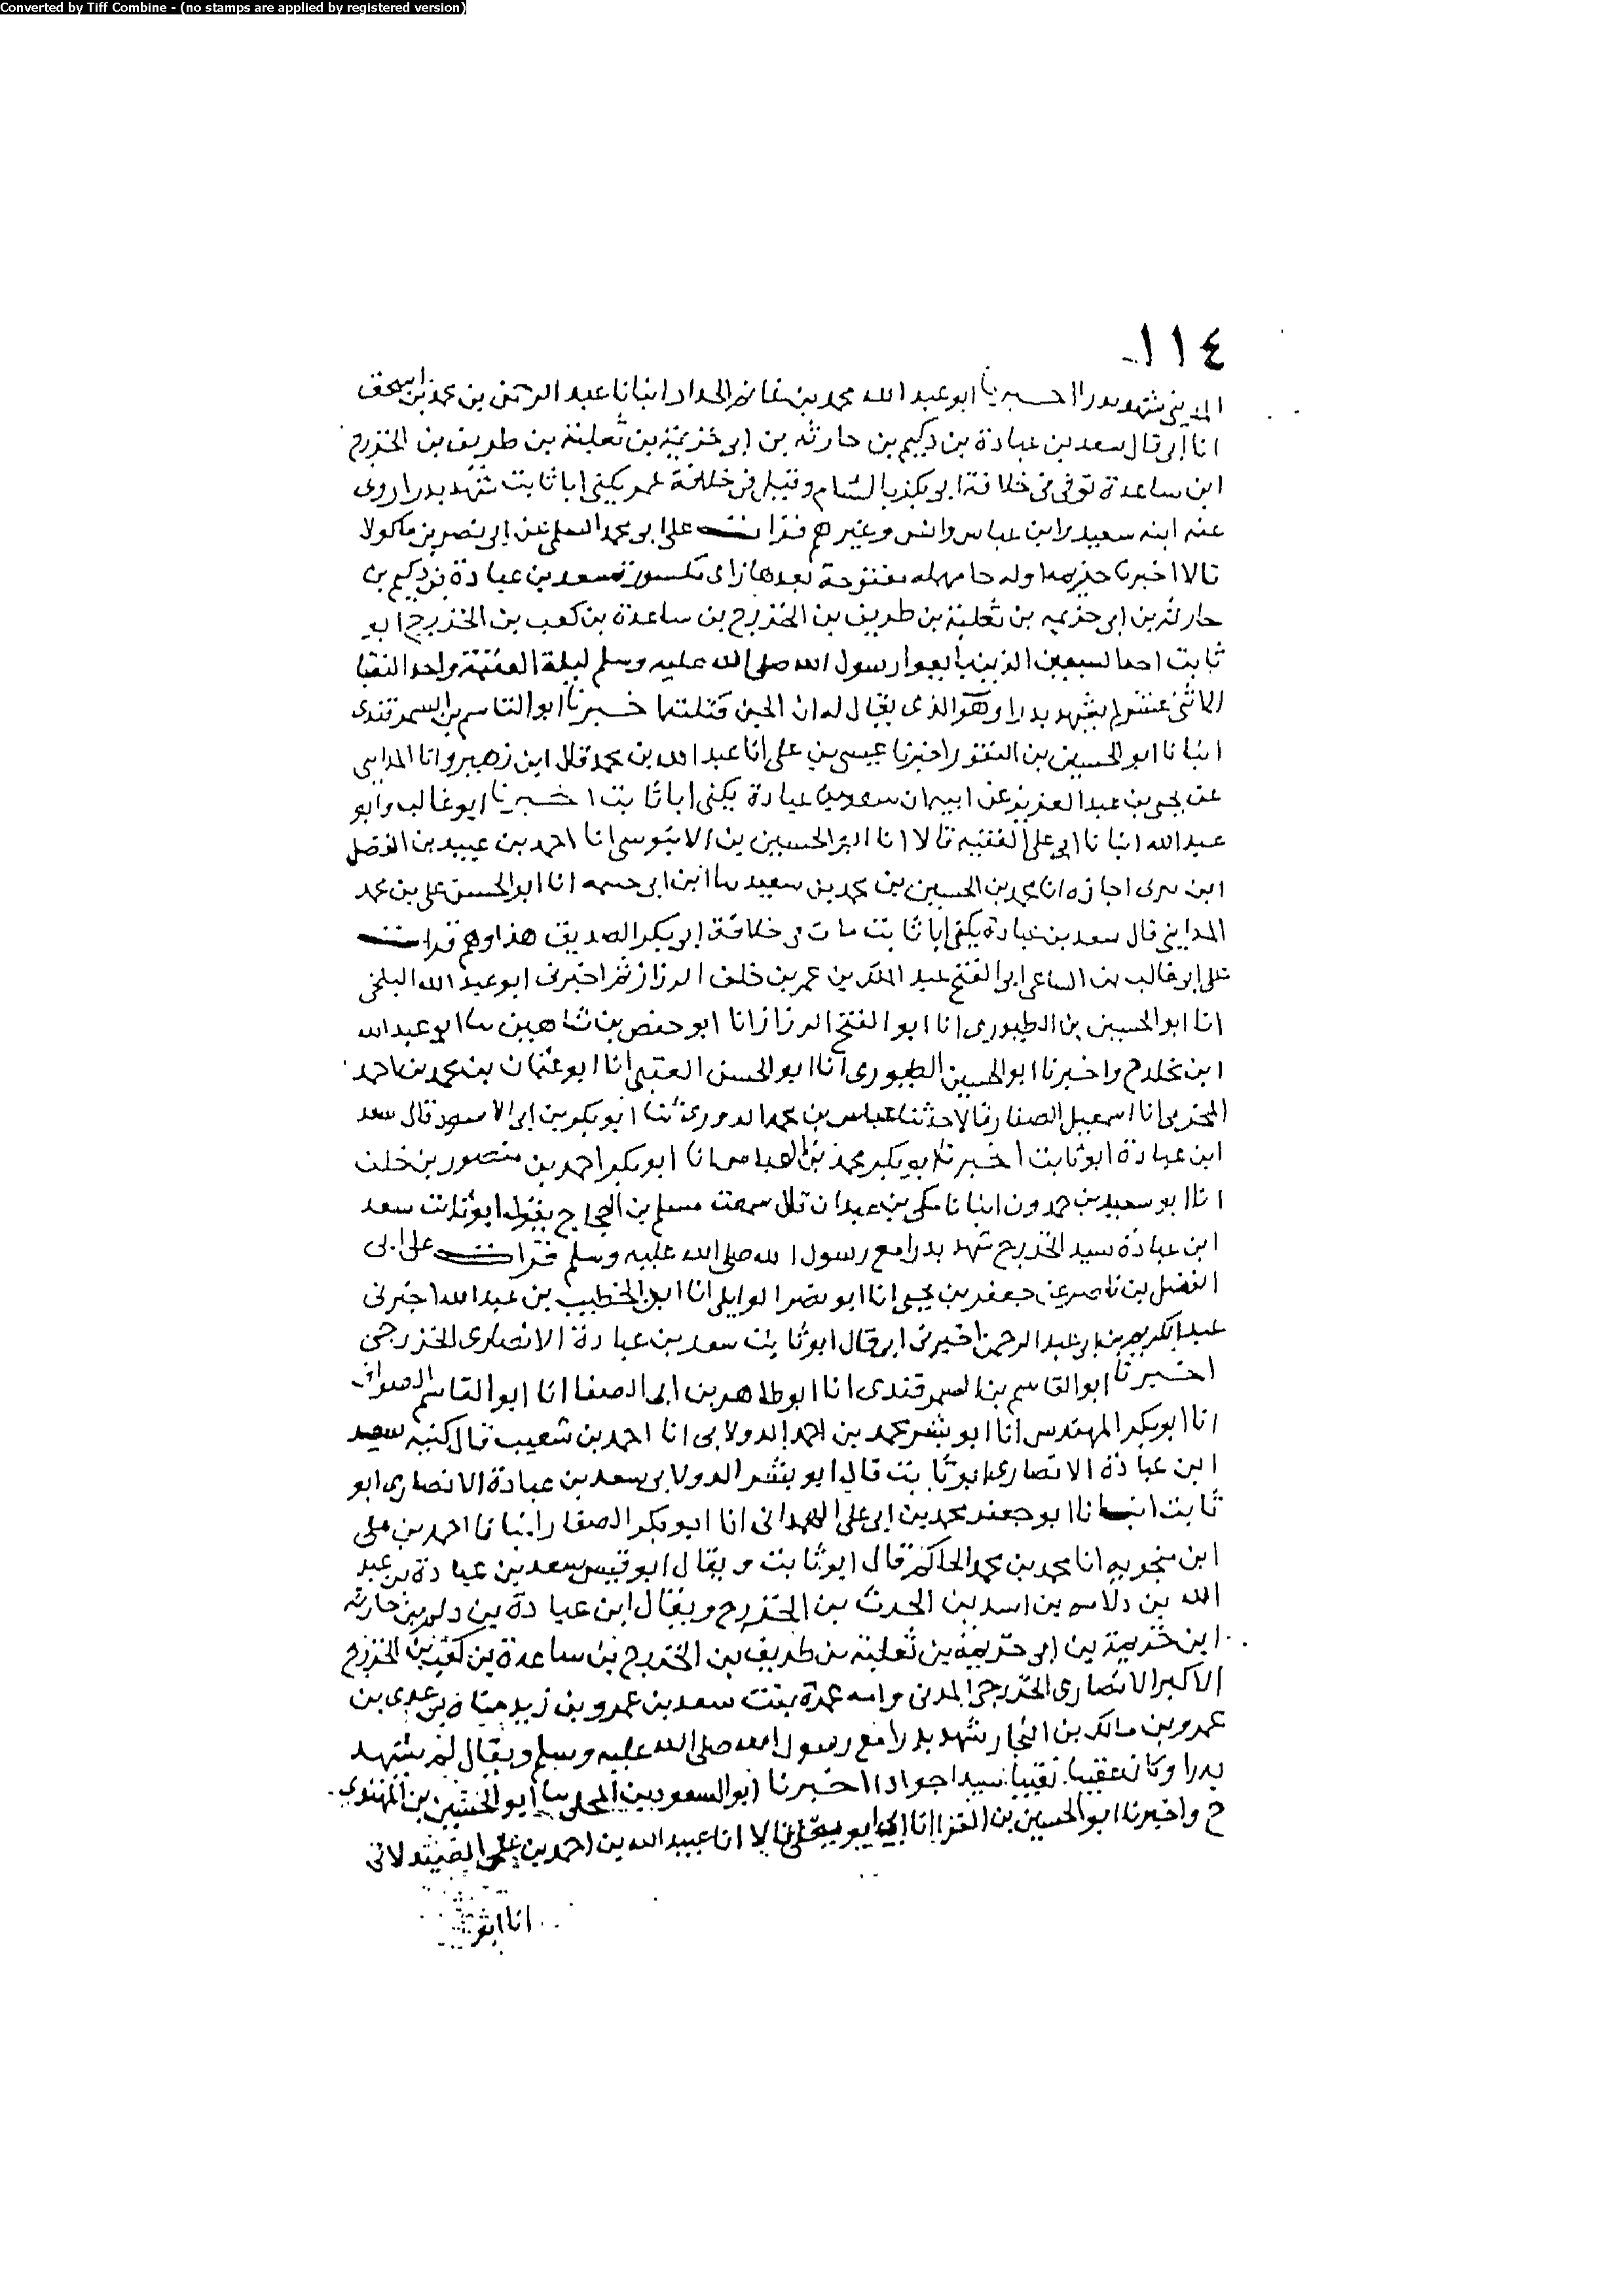 Converted by Tiff Combine - (no stamps are applied by registered version)
١١٤
المديني شهد بدرا اخبرنا ابو عبد الله محمد بن غانم الحداد انبانا عبد الرحمن بن محمد بن اسحق
انا ابي قال سعد بن عبادة بن دكيم بن حارثه بن ابي خزيمة بن ثعلبة بن طريف بن الخزرج
ابن ساعدة توفي في خلافة ابو بكر بالشام وقتيل في خلافة عمر يكنى ابا ثابت شهد بدرا روى
عنه ابنه سعيد وابن عباس وانس وغيرهم قرات على ابو محمد السلمي عن ابي نصر بن ماكولا
قالا اخبرنا حزيمه اوله حا مهمله مفتوحة بعدها زاى مكسورة سعد بن عبادة بن دكيم بن
حارثه بن ابي حزيمه بن ثعلبة بن طريف بن الخزرج بن ساعدة بن كعب بن الخزرج ابو
ثابت احد السبعين الذين بايعوا رسول الله صلى الله عليه وسلم ليلة العقبة واحد النقبا
الاثني عشر لم يشهد بدرا وهو الذى يقال له ان الجن قتلته اخبرنا ابو القاسم بن السمرقندى
انبانا ابو الحسين بن النقور اخبرنا عيسى بن على انا عبد الله بن محمد قال ابن زهير وانا المدايني
عن يحيى بن عبد العزيز عن ابيه ان سعد بن عبادة يكنى ابا ثابت اخبرنا ابو غالب وابو
عبد الله انبانا ابي على الفقيه قالا انا ابو الحسين بن الابنوسي انا احمد بن عبيد بن الفضل
ابن بيرى اجازه انا محمد بن الحسين بن محمد بن سعيد سا ابن ابي خيثمه انا ابو الحسن على بن محمد
المدايني قال سعد بن عبادة يكنى ابا ثابت مات في خلافة ابي بكر الصديق هذا وهم قرات
على ابو غالب بن عن ابي الفتح عبد الملك بن عمر بن خلف الرزاز ثم اخبرني ابو عبد الله البلخي
انا ابو الحسين بن الطيورى انا ابو الفتح الرزاز انا ابو حفص بن شاهين سا ابو عبد الله
ابن مخلد ح واخبرنا ابو الحسين الطيورى انا ابو الحسن العتيقي انا ابو عثمان بن محمد بن احمد
المخرمي انا اسمعيل الصفار قالا حدثنا عباس بن محمد الدورى ثنا ابو بكر بن ابي الاسود قال سعد
ابن عبادة ابو ثابت اخبرنا ابو بكر محمد بن العباس انا ابو بكر احمد بن منصور بن خلف
انا ابو سعيد بن حمدون انبانا مكي بن عبدان قال سمعت مسلم بن الحجاج يقول ابو ثابت سعد
ابن عبادة سيد الخزرج شهد بدرا مع رسول الله صلى الله عليه وسلم قرات على ابي
الفضل بن ناصر عن جعفر بن يحيى انا ابو نصر الوايلي انا ابن الخطيب بن عبد الله اخبرني
عبد الكريم بن ابي عبد الرحمن اخبرني ابي قال ابو ثابت سعد بن عبادة الانصارى الخزرجى
اخبرنا ابو القاسم بن السمرقندى انا ابو طاهر بن ابي الصفا انا ابو القاسم الصواف
انا ابو بكر المهندس انا ابو بشر محمد بن احمد الدولابي انا احمد بن شعيب قال كنيه سعد
ابن عبادة الانصارى ابو ثابت قال ابو بشر الدولابي سعد بن عبادة الانصارى ابو
ثابت انبانا ابو جعفر محمد بن ابي على الهمداني انا ابو بكر الصفار انبانا احمد بن على
ابن منجويه انا محمد بن محمد الحاكم قال ابو ثابت ويقال ابو قيس سعد بن عبادة بن عبد
الله بن دلاسه بن اسد بن الحرث بن الخزرج ويقال ابن عبادة بن دليم بن حارثه
ابن خزيمة بن ابى خزيمة بن ثعلبة بن طريف بن الخزرج بن ساعدة بن كعب بن الخزرج
الاكبر الانصارى الخزرجى المدني وامه عمرة بنت سعد بن عمرو بن زيد مناة بن عدى بن
عمرو بن مالك بن النجار شهد بدرا مع رسول الله صلى الله عليه وسلم ويقال لم يشهد
بدرا وكان عقبيا نقيبا سيدا جوادا اخبرنا ابو السعود بن المجلى سا ابو الحسين بن المهتدى
ح واخبرنا ابو الحسين بن الفرا انا ابى ابو يعلى قالا انا عبيد الله بن احمد بن على الصيدلاني
انا ابو